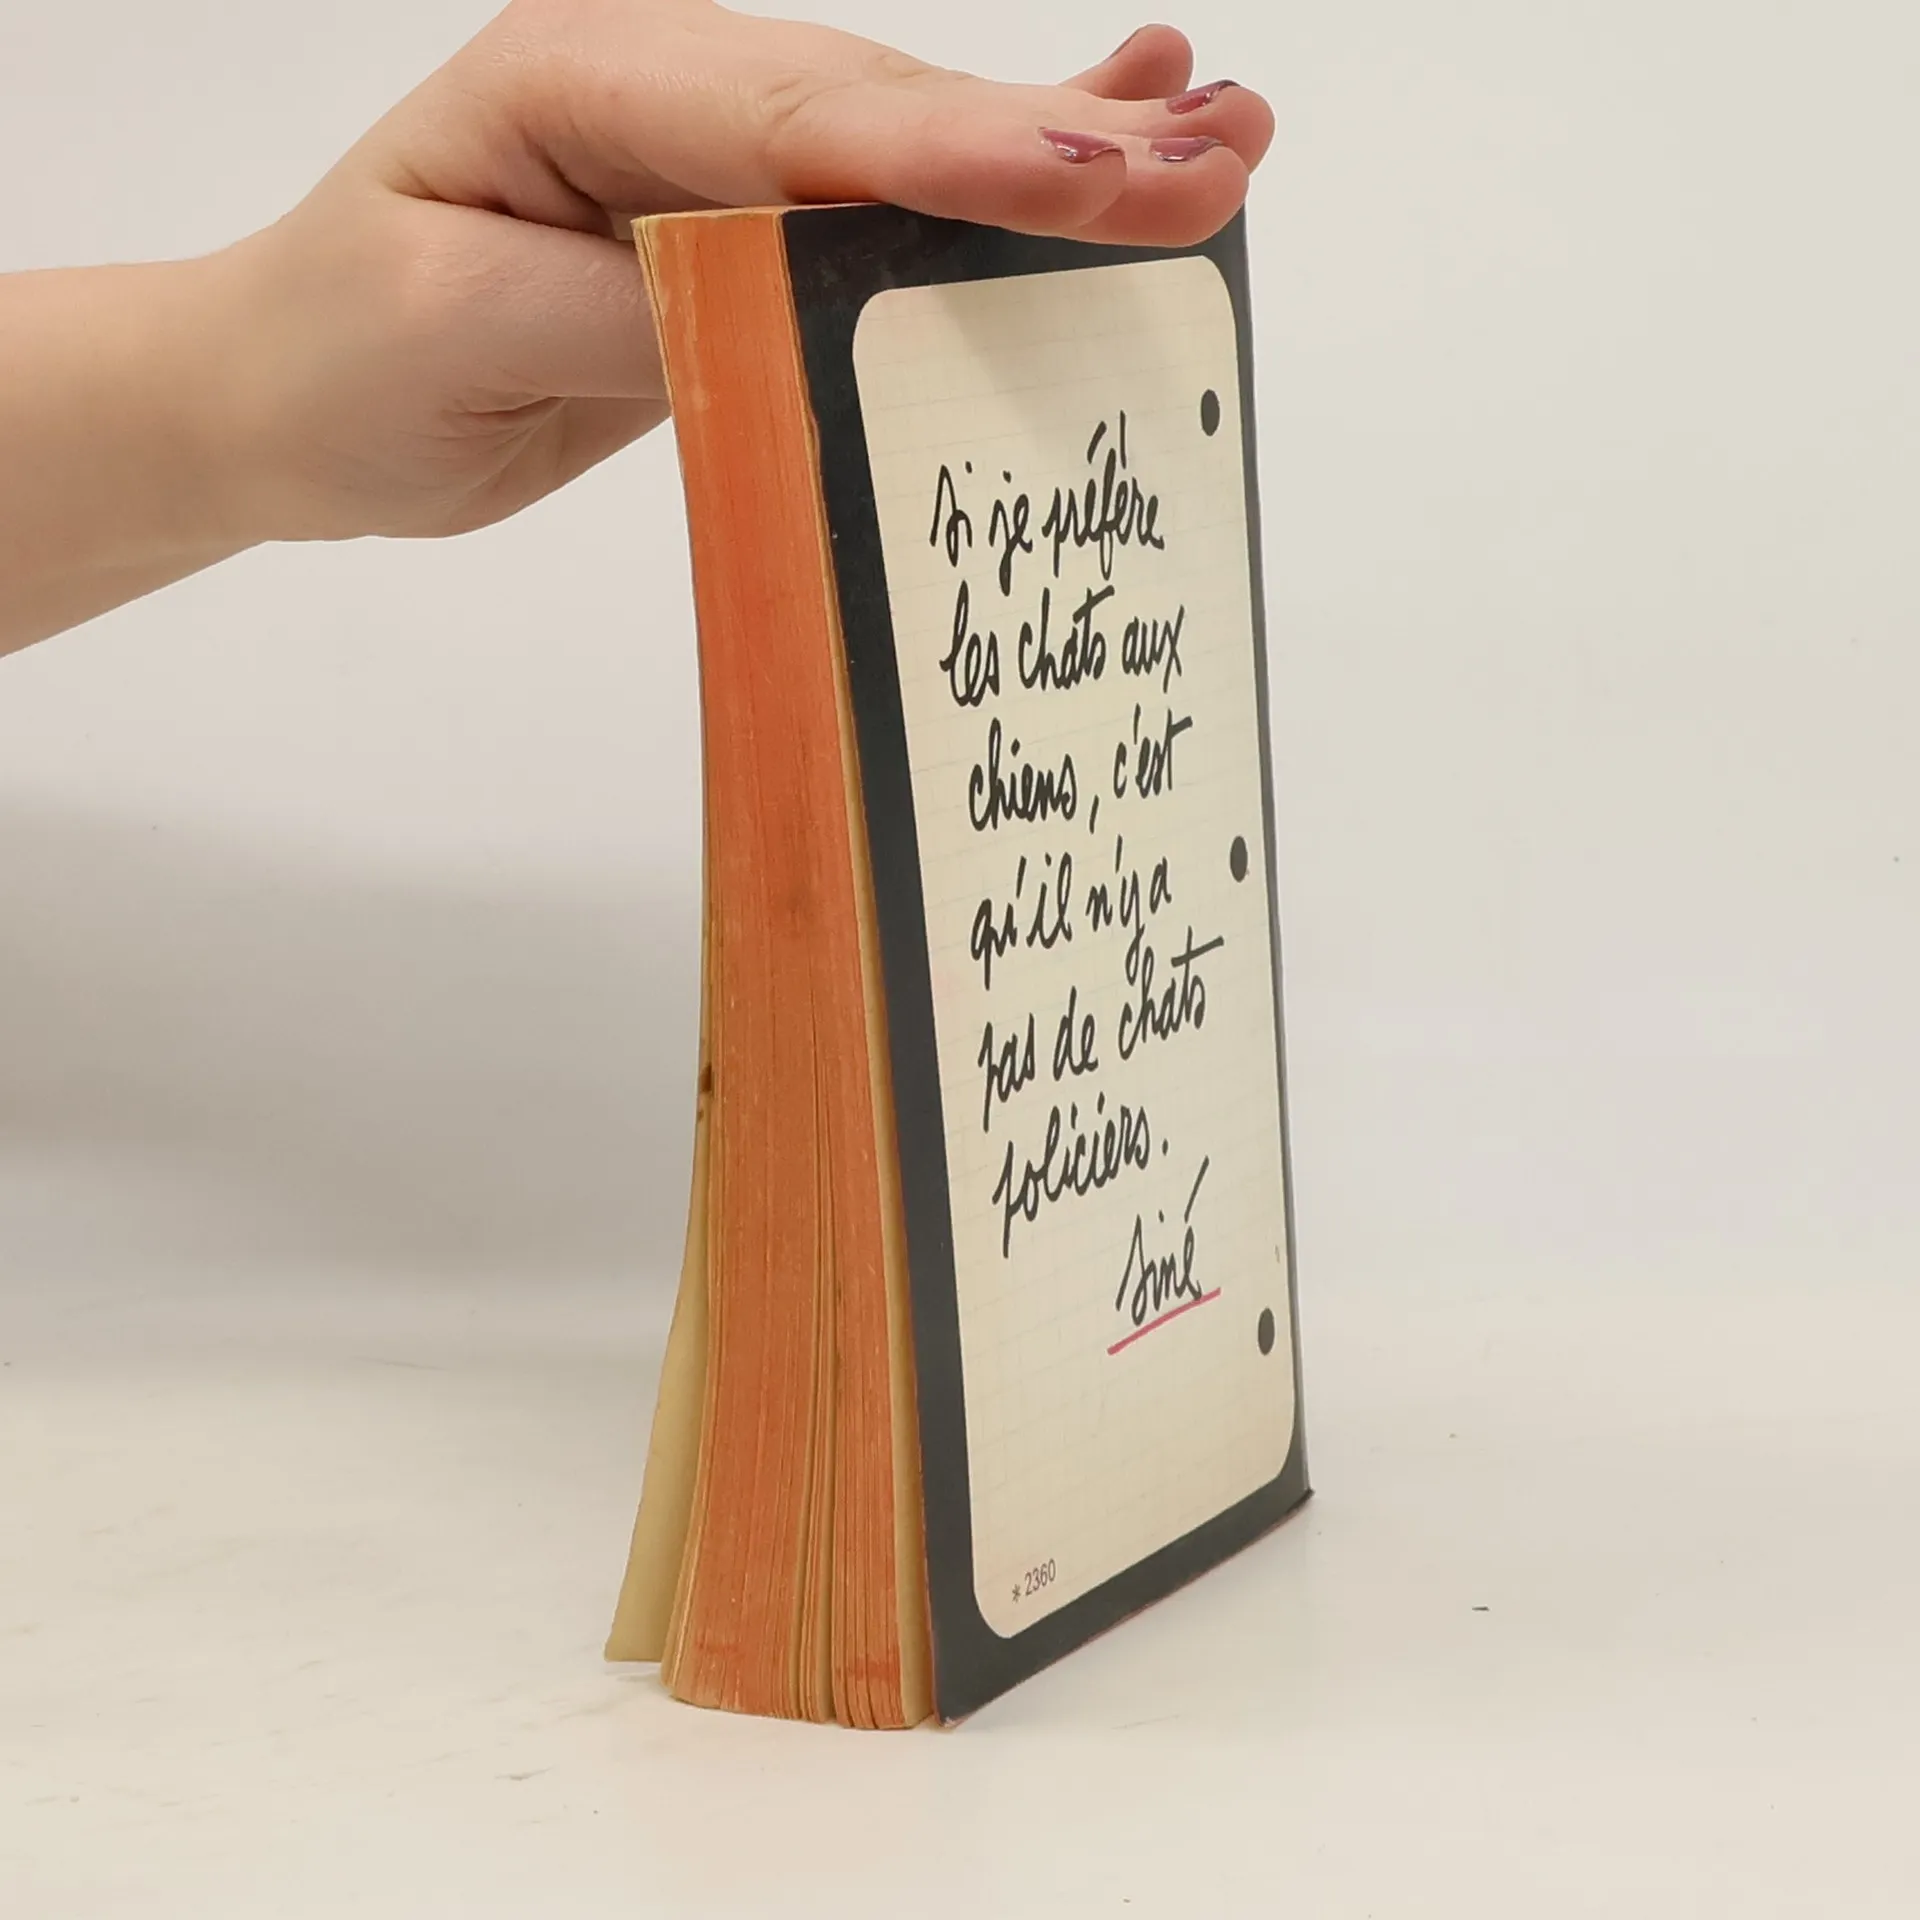 si je préfère
les chats aux
chiens, c'est
qu'il n'y a
pas de chats
policiers.
siné
* 2360